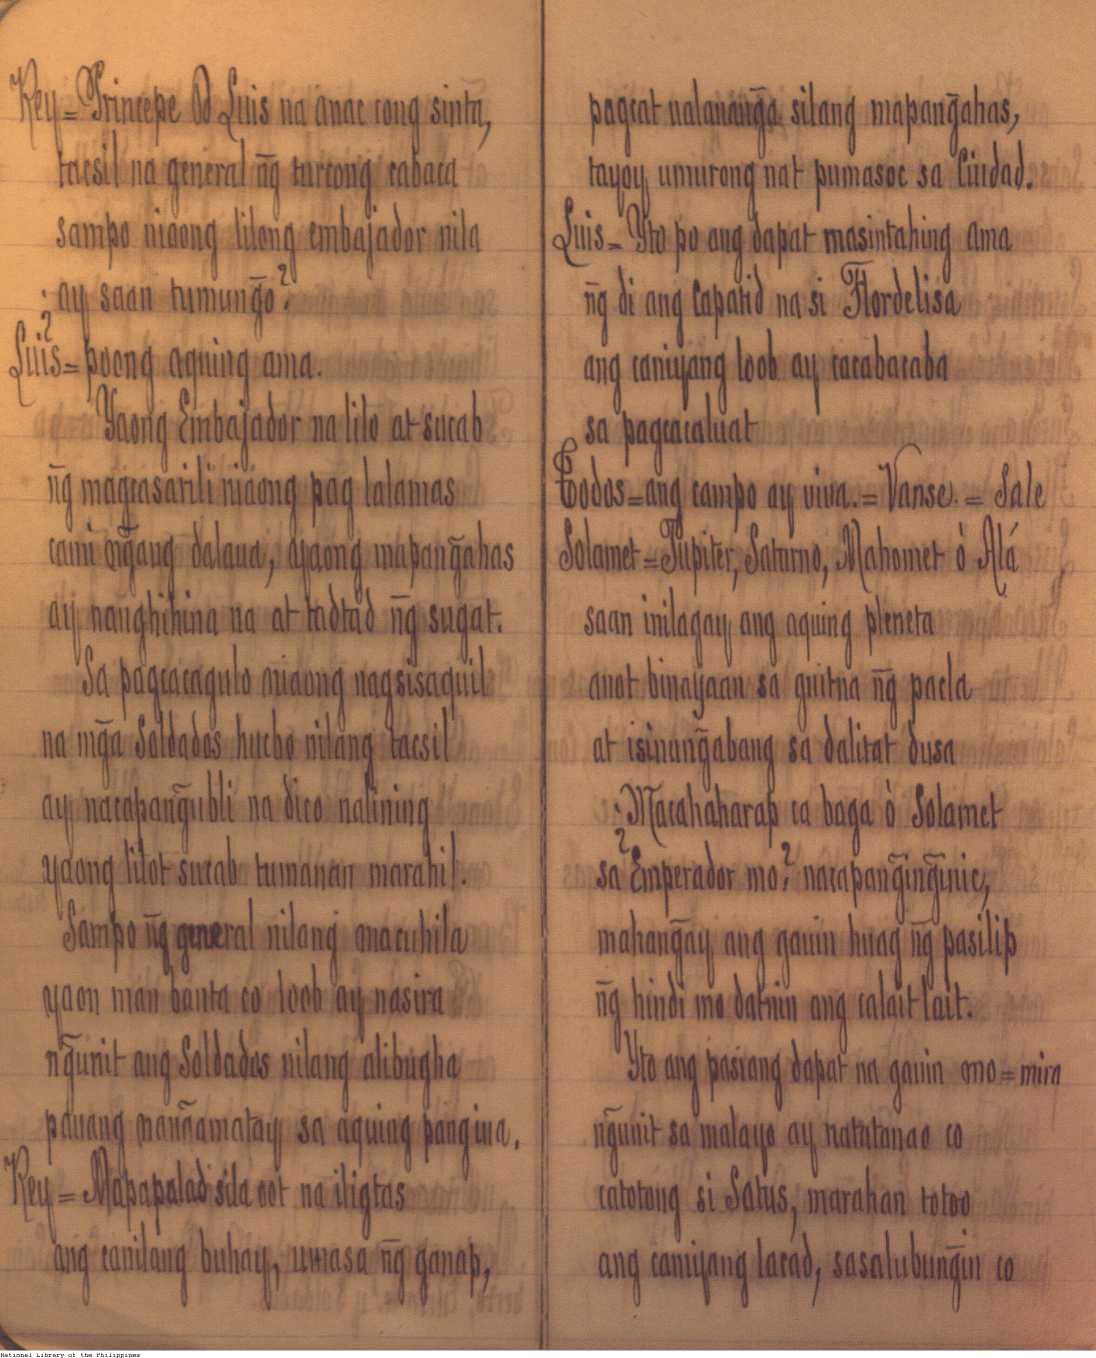 Rey = Principe Dn Luis na anac cong sinta,
tacsil na general n̄g turcong cabaca
sampo niaong lilong embajador nila
¿ay saan tumung̃o?
Luis = poong aquing ama.
Yaong Embajador na lilo at sucab
n̄g magcasarili niaong pag lalamas
cami ng̃ang dalaua, ayaong mapang̃ahas
ay nanghihina na at tadtad n̄g sugat.
Sa pagcacagulo niaong nagsisaquil
na mg̃a Soldados hucbo nilang tacsil
ay nacapang̃ubli na dico nalining
yaong lilot sucab tumanan marahil.
Sampo n̄g general nilang macuhila
yaon man banta co loob ay nasira
ng̃unit ang Soldados nilang alibugha
pauang nang̃amatay sa aquing pangina.
Rey = Mapapalad sila cot na iligtas
ang canilang buhay, umasa n̄g ganap,
pagcat ualanang̃a silang mapang̃ahas,
tayoy umurong nat pumasoc sa Ciudad.
Luis = Yto po ang dapat masintahing ama
n̄g di ang Capatid na si Flordelisa
ang caniyang loob ay cacabacaba
sa pagcacaluat
Todos = ang campo ay viva. = Vanse. = Sale
Solamet = Jupiter, Saturno, Mahomet ò Alá
saan inilagay ang aquing pleneta
anot binayaan sa guitna n̄g pacla
at isinang̃abang sa dalitat dusa
¿Macahaharap ca baga ò Solamet
sa Emperador mo? nacapang̃ing̃inic,
mahang̃ay ang gauin huag n̄g pasilip
n̄g hindi mo datnin ang calait lait.
Yto ang pasiang dapat na gauin mo = mira
ng̃unit sa malayo ay natatanao co
catotong si Satus, marahan totoo
ang caniyang lacad, sasalubung̃in co
National Library of the Philippines